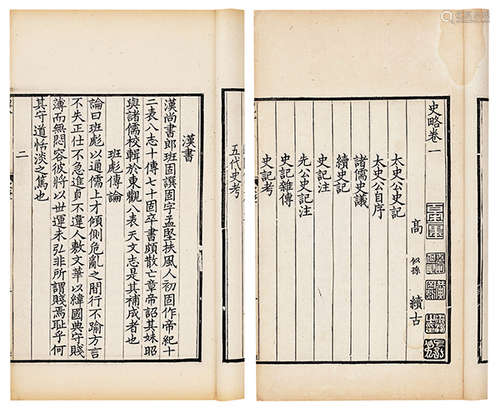 史略卷一
高
似孫
續古
太史公史記
太史公自序
諸儒史議
續史記
史記注
先公史記注
史記雜傳
史記考
五代史考
漢書
漢尚書郎班固譔固字孟堅扶風人初固作帝紀十
二表八志十傳七十固卒書頗散亡章帝詔其妹昭
與諸儒校輯於東觀八表天文志是其補成者也
班彪傳論
論曰班彪以通儒上才傾側危亂之間行不踰方言
不失正仕不急進貞不違人敷文華以緯國典守賤
薄而無悶容彼將以世運未弘非所謂賤焉恥乎何
其守道恬淡之篤也
二